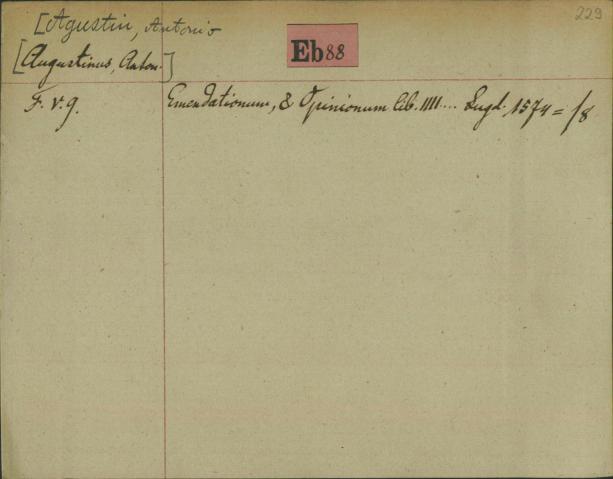 229
[Agustin, Antonio
[Augustinus, Anton.]
Eb 88
F. v. 9. Emendationum, & Opinionum lib. IIII.... Lugd. 1574 = /8